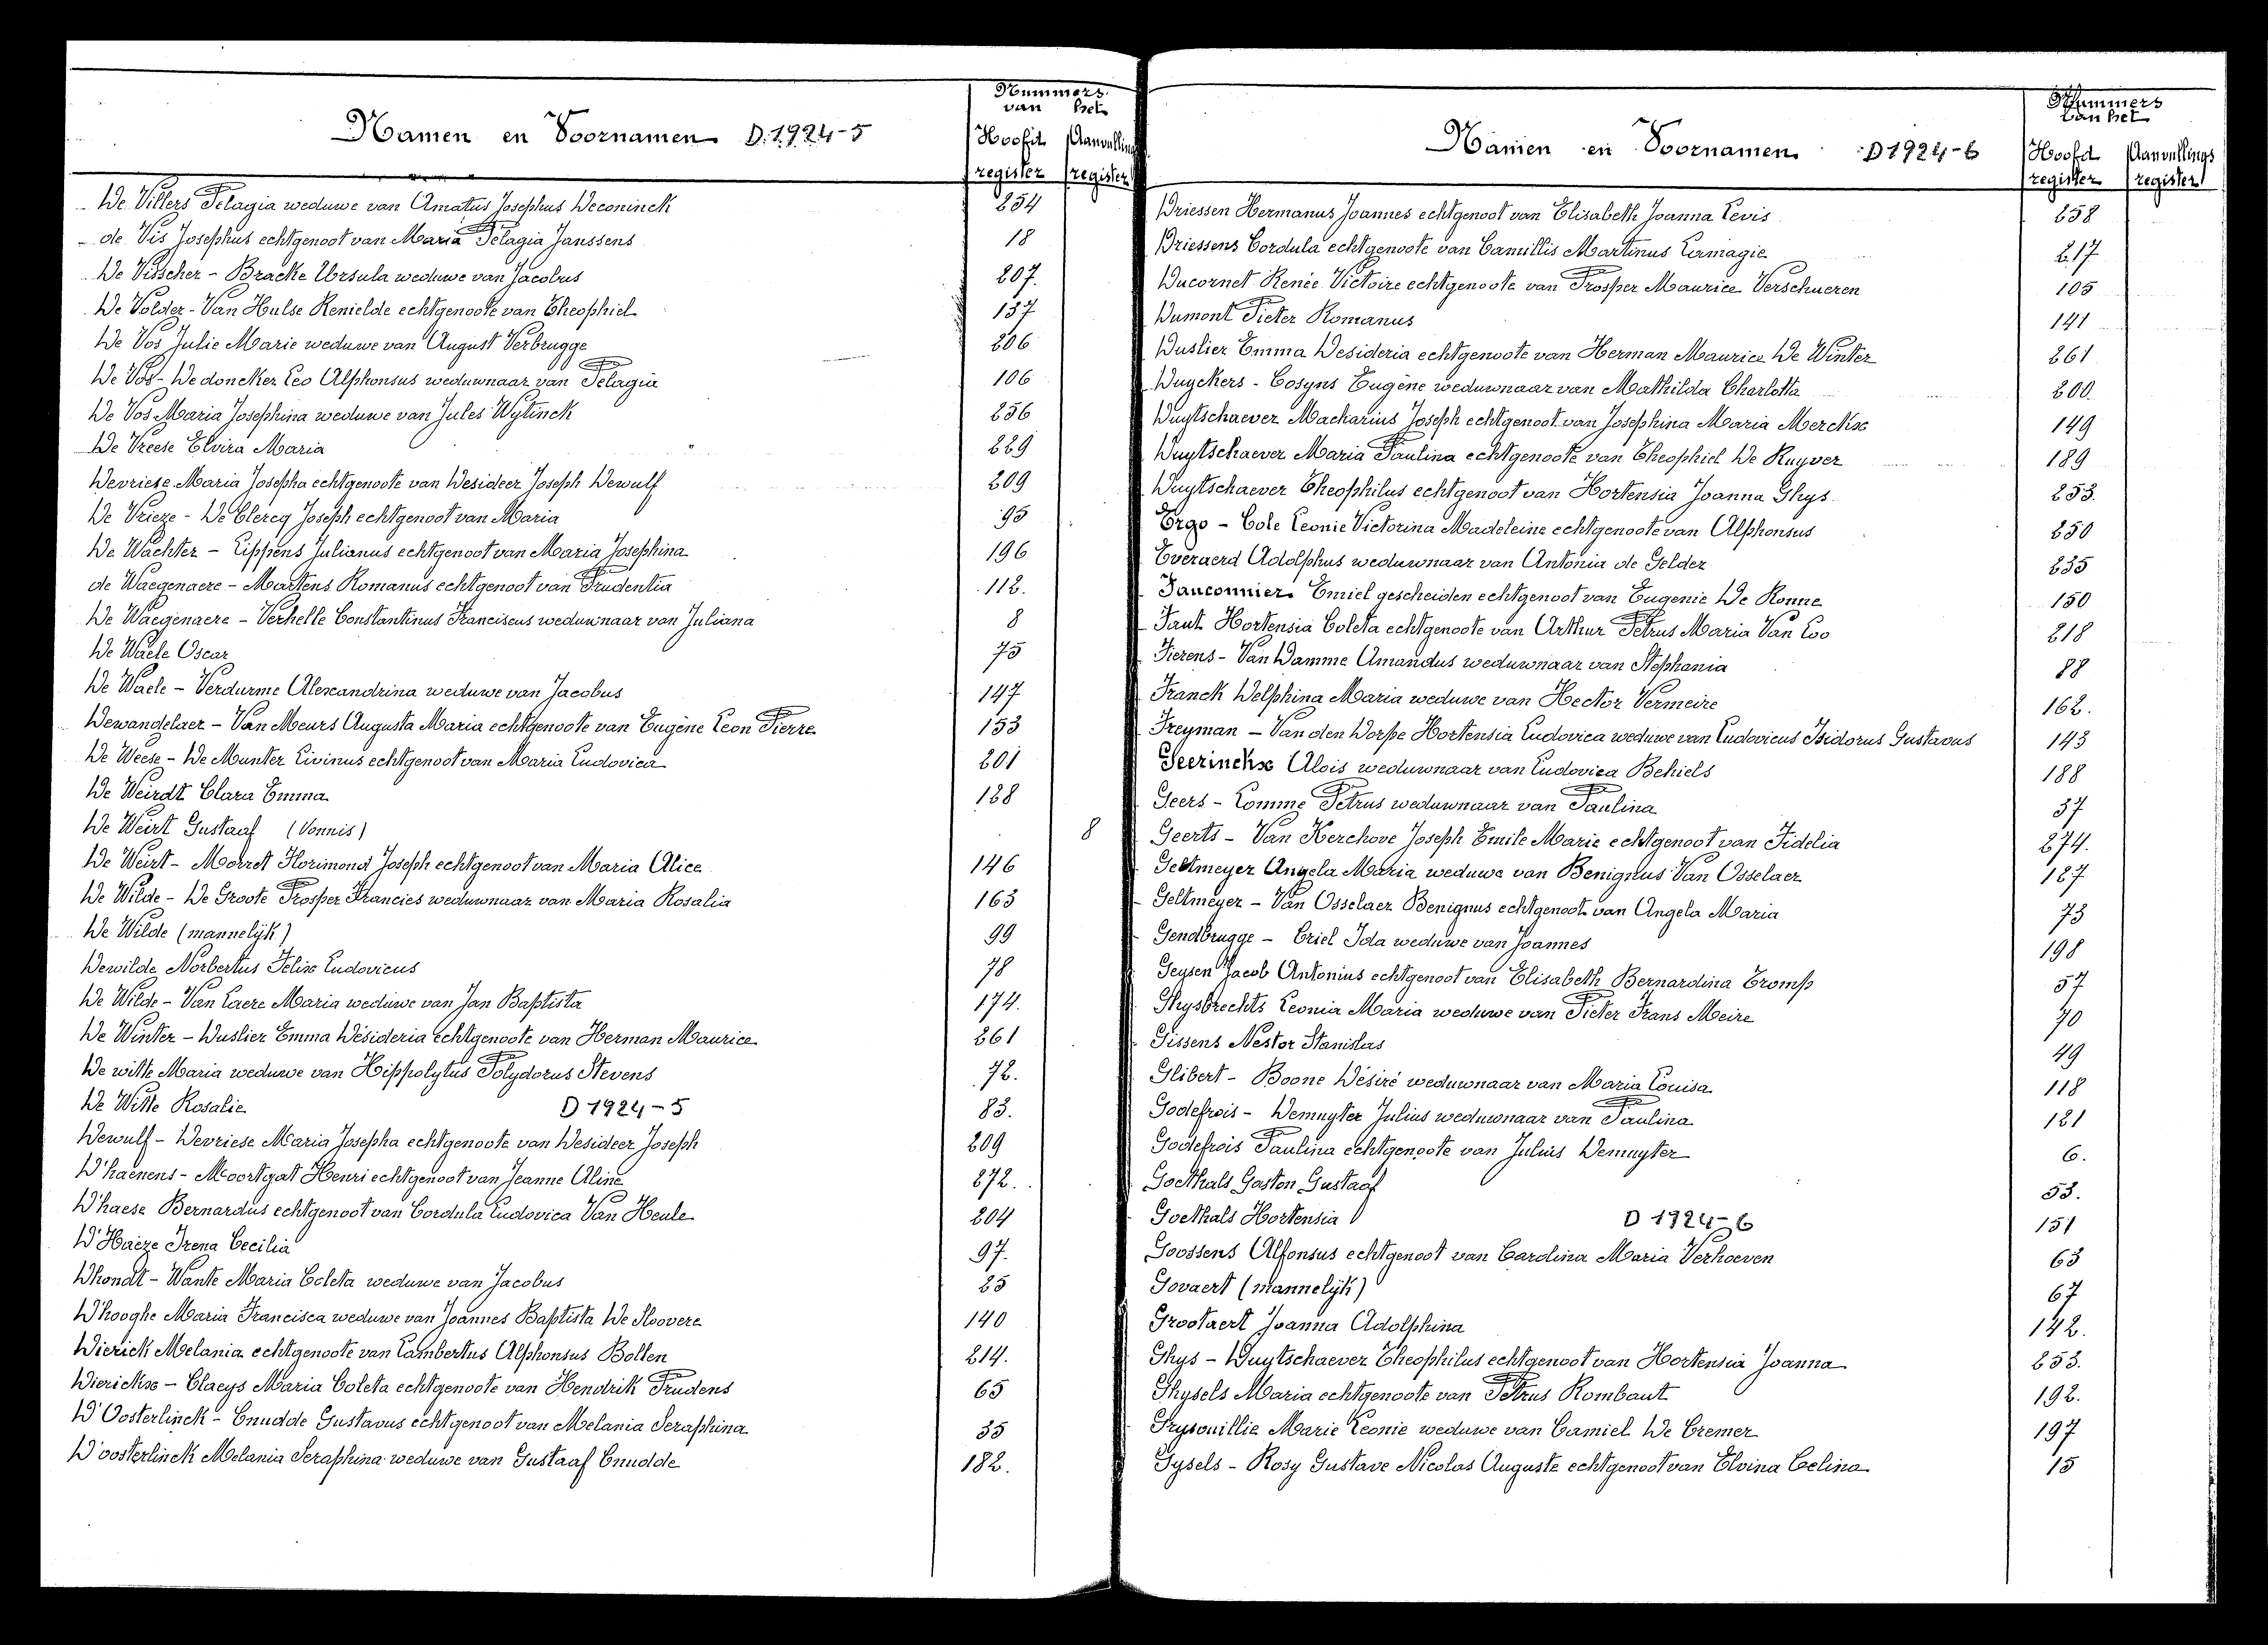 Namen en Voornamen D.1924-5
Nummers
van het
Hoofd Aanvullings
register register
De Villers Pelagia weduwe van Amatus Josephus Deconinck 254
de Vis Josephus echtgenoot van Maria Pelagia Janssens 18
De Visscher - Bracke Ursula weduwe van Jacobus 207.
De Volder - Van Hulse Renielde echtgenoote van Theophiel 137
De Vos Julie Marie weduwe van August Verbrugge 206
De Vos - Dedoncker Leo Alphonsus weduwnaar van Pelagia 106
De Vos Maria Josephina weduwe van Jules Wytinck 256
De Vreese Elvira Maria 229
Devriese Maria Josepha echtgenoote van Desideer Joseph Dewulf 209
De Vrieze - De Clercq Joseph echtgenoot van Maria 95
De Wachter - Lippens Julianus echtgenoot van Maria Josephina 196
de Waegenaere - Martens Romanus echtgenoot van Prudentia 112.
De Waegenaere - Verhelle Constantinus Franciscus weduwnaar van Juliana 8
De Waele Oscar 75
De Waele - Verdurme Alexandrina weduwe van Jacobus 147
Dewandelaer - Van Meurs Augusta Maria echtgenoote van Eugène Leon Pierre 153
De Weese - De Munter Livinus echtgenoot van Maria Ludovica 201
De Weirdt Clara Emma 128
De Weirt Gustaaf (Vonnis) 8
De Weirt - Morret Florimond Joseph echtgenoot van Maria Alice 146
De Wilde - De Groote Prosper Francies weduwnaar van Maria Rosalia 163
De Wilde (mannelijk) 99
Dewilde Norbertus Felix Ludovicus 78
De Wilde - Van Laere Maria weduwe van Jan Baptista 174.
De Winter - Duslier Emma Désideria echtgenoote van Herman Maurice 261
De witte Maria weduwe van Hippolytus Polydorus Stevens 72.
De Witte Rosalie D 1924-5 83.
Dewulf - Devriese Maria Josepha echtgenoote van Desideer Joseph 209
D'haenens - Moortgat Henri echtgenoot van Jeanne Aline 272.
D'haese Bernardus echtgenoot van Cordula Ludovica Van Heule 204
D'Haeze Irena Cecilia 97.
Dhondt - Wante Maria Coleta weduwe van Jacobus 25
D'hooghe Maria Francisca weduwe van Joannes Baptista De Sloovere 140
Dierick Melania echtgenoote van Lambertus Alphonsus Bollen 214.
Dierickx - Claeys Maria Coleta echtgenoote van Hendrik Prudens 65
D'Oosterlinck - Cnudde Gustavus echtgenoot van Melania Seraphina 35
D'oosterlinck Melania Seraphina weduwe van Gustaaf Cnudde 182.
Namen en Voornamen D 1924-6
Nummers
van het
Hoofd Aanvullings
register register
Driessen Hermanus Joannes echtgenoot van Elisabeth Joanna Levis 258
Driessens Cordula echtgenoote van Camillis Martinus Lamagie 217
Ducornet Renée Victoire echtgenoote van Prosper Maurice Verschueren 105
Dumont Pieter Romanus 141
Duslier Emma Desideria echtgenoote van Herman Maurice De Winter 261
Duyckers - Cosyns Eugène weduwnaar van Mathilda Charlotta 200
Duytschaever Macharius Joseph echtgenoot van Josephina Maria Merckx 149
Duytschaever Maria Paulina echtgenoote van Theophiel De Ruyver 189
Duytschaever Theophilus echtgenoot van Hortensia Joanna Ghys 253.
Ergo - Cole Leonie Victorina Madeleine echtgenoote van Alphonsus 250
Everaerd Adolphus weduwnaar van Antonia de Gelder 235
Fauconnier Emiel gescheiden echtgenoot van Eugenie De Ronne 150
Faut Hortensia Coleta echtgenoote van Arthur Petrus Maria Van Loo 218
Fierens - Van Damme Amandus weduwnaar van Stephania 88
Franck Delphina Maria weduwe van Hector Vermeire 162.
Freyman - Van den Dorpe Hortensia Ludovica weduwe van Ludovicus Isidorus Gustavus 143
Geerinckx Alois weduwnaar van Ludovica Behiels 188
Geers - Lomme Petrus weduwnaar van Paulina 37
Geerts - Van Kerchove Joseph Emile Marie echtgenoot van Fidelia 274.
Geltmeyer Angela Maria weduwe van Benignus Van Osselaer 187
Geltmeyer - Van Osselaer Benignus echtgenoot van Angela Maria 73
Gendbrugge - Criel Ida weduwe van Joannes 198
Geysen Jacob Antonius echtgenoot van Elisabeth Bernardina Tromp 57
Ghysbrechts Leonia Maria weduwe van Pieter Frans Meire 70
Gissens Nestor Stanislas 49
Glibert - Boone Désiré weduwnaar van Maria Louisa 118
Godefrois - Demuyter Julius weduwnaar van Paulina 121
Godefrois Paulina echtgenoote van Julius Demuyter 6.
Goethals Gaston Gustaaf 53.
Goethals Hortensia D 1924-6 151
Goossens Alfonsus echtgenoot van Carolina Maria Verhoeven 63
Govaert (mannelijk) 67
Grootaert Joanna Adolphina 142.
Ghys - Duytschaever Theophilus echtgenoot van Hortensia Joanna 253.
Ghysels Maria echtgenoote van Petrus Rombaut 192.
Grysouillie Marie Leonie weduwe van Camiel De Cremer 197
Gysels - Rosy Gustave Nicolas Auguste echtgenoot van Elvina Celina 15